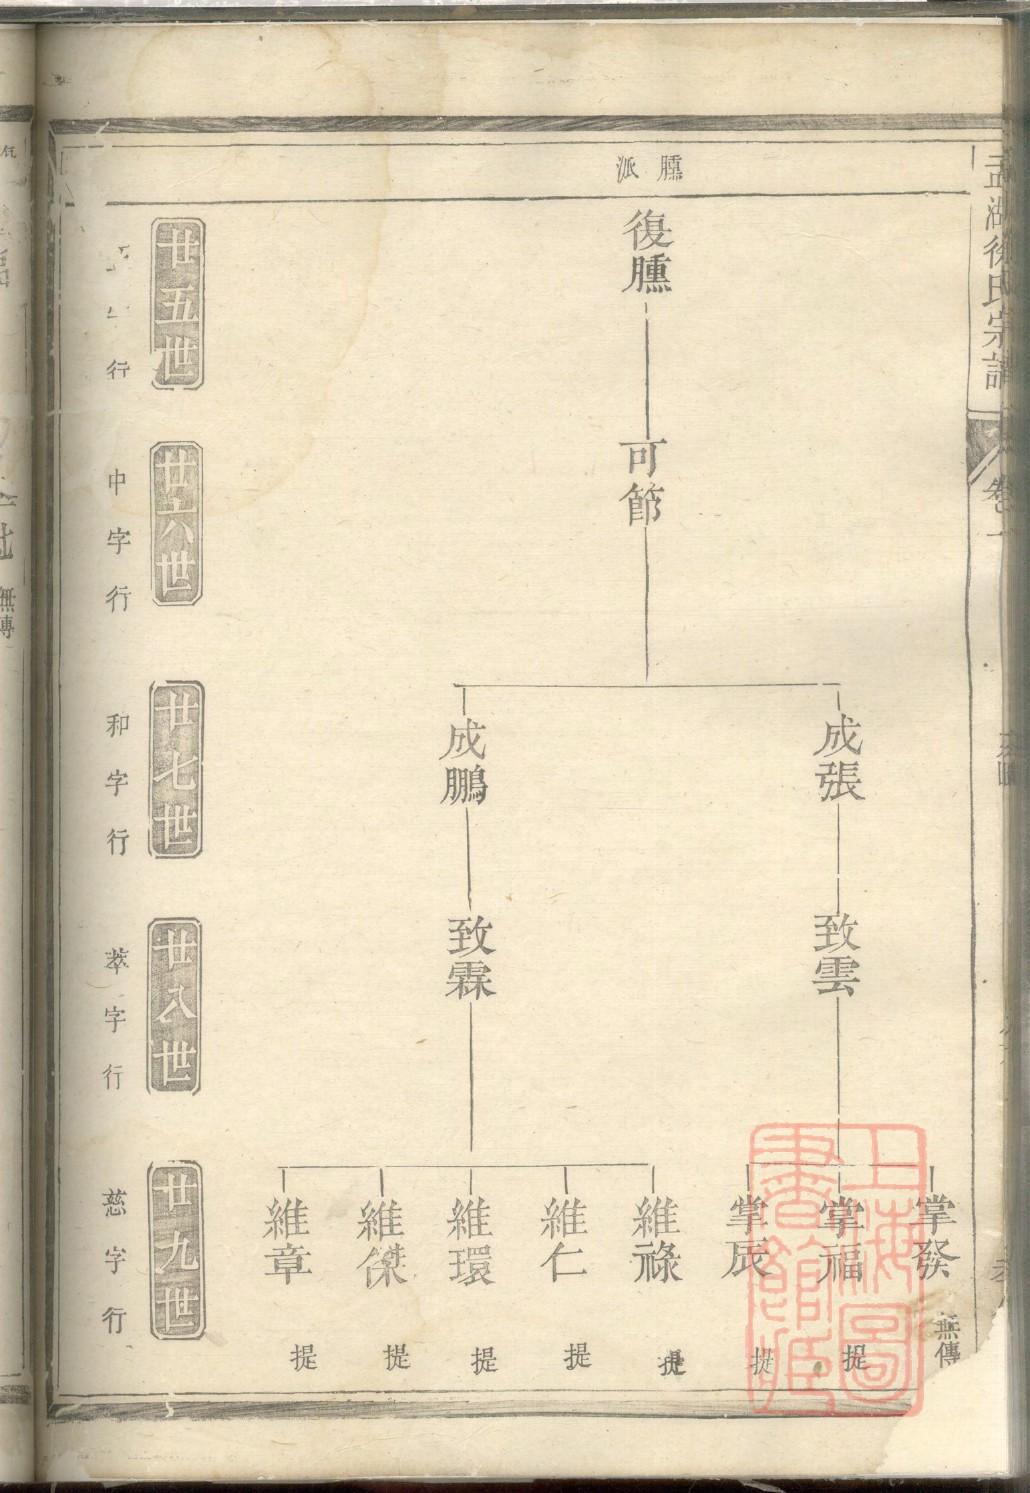 孟湖徐氏宗譜
卷一
臐派
復臐
可節
成張
成鵬
致雲
致霖
掌發 無傳
掌福 提
掌辰 提
維祿 提
維仁 提
維環 提
維傑 提
維章 提
廿五世
行
廿六世
中字行
廿七世
和字行
廿八世
萃字行
廿九世
慈字行
上海圖書館藏
無傳